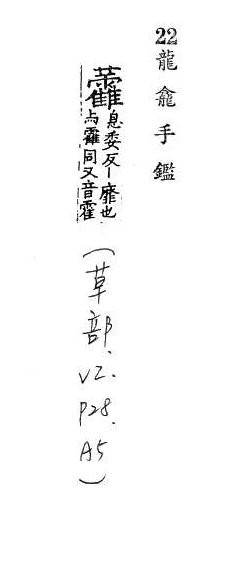 22龍龕手鑑
息委反丨靡也
与靃同又音霍
(草部、V2、P28、A5)